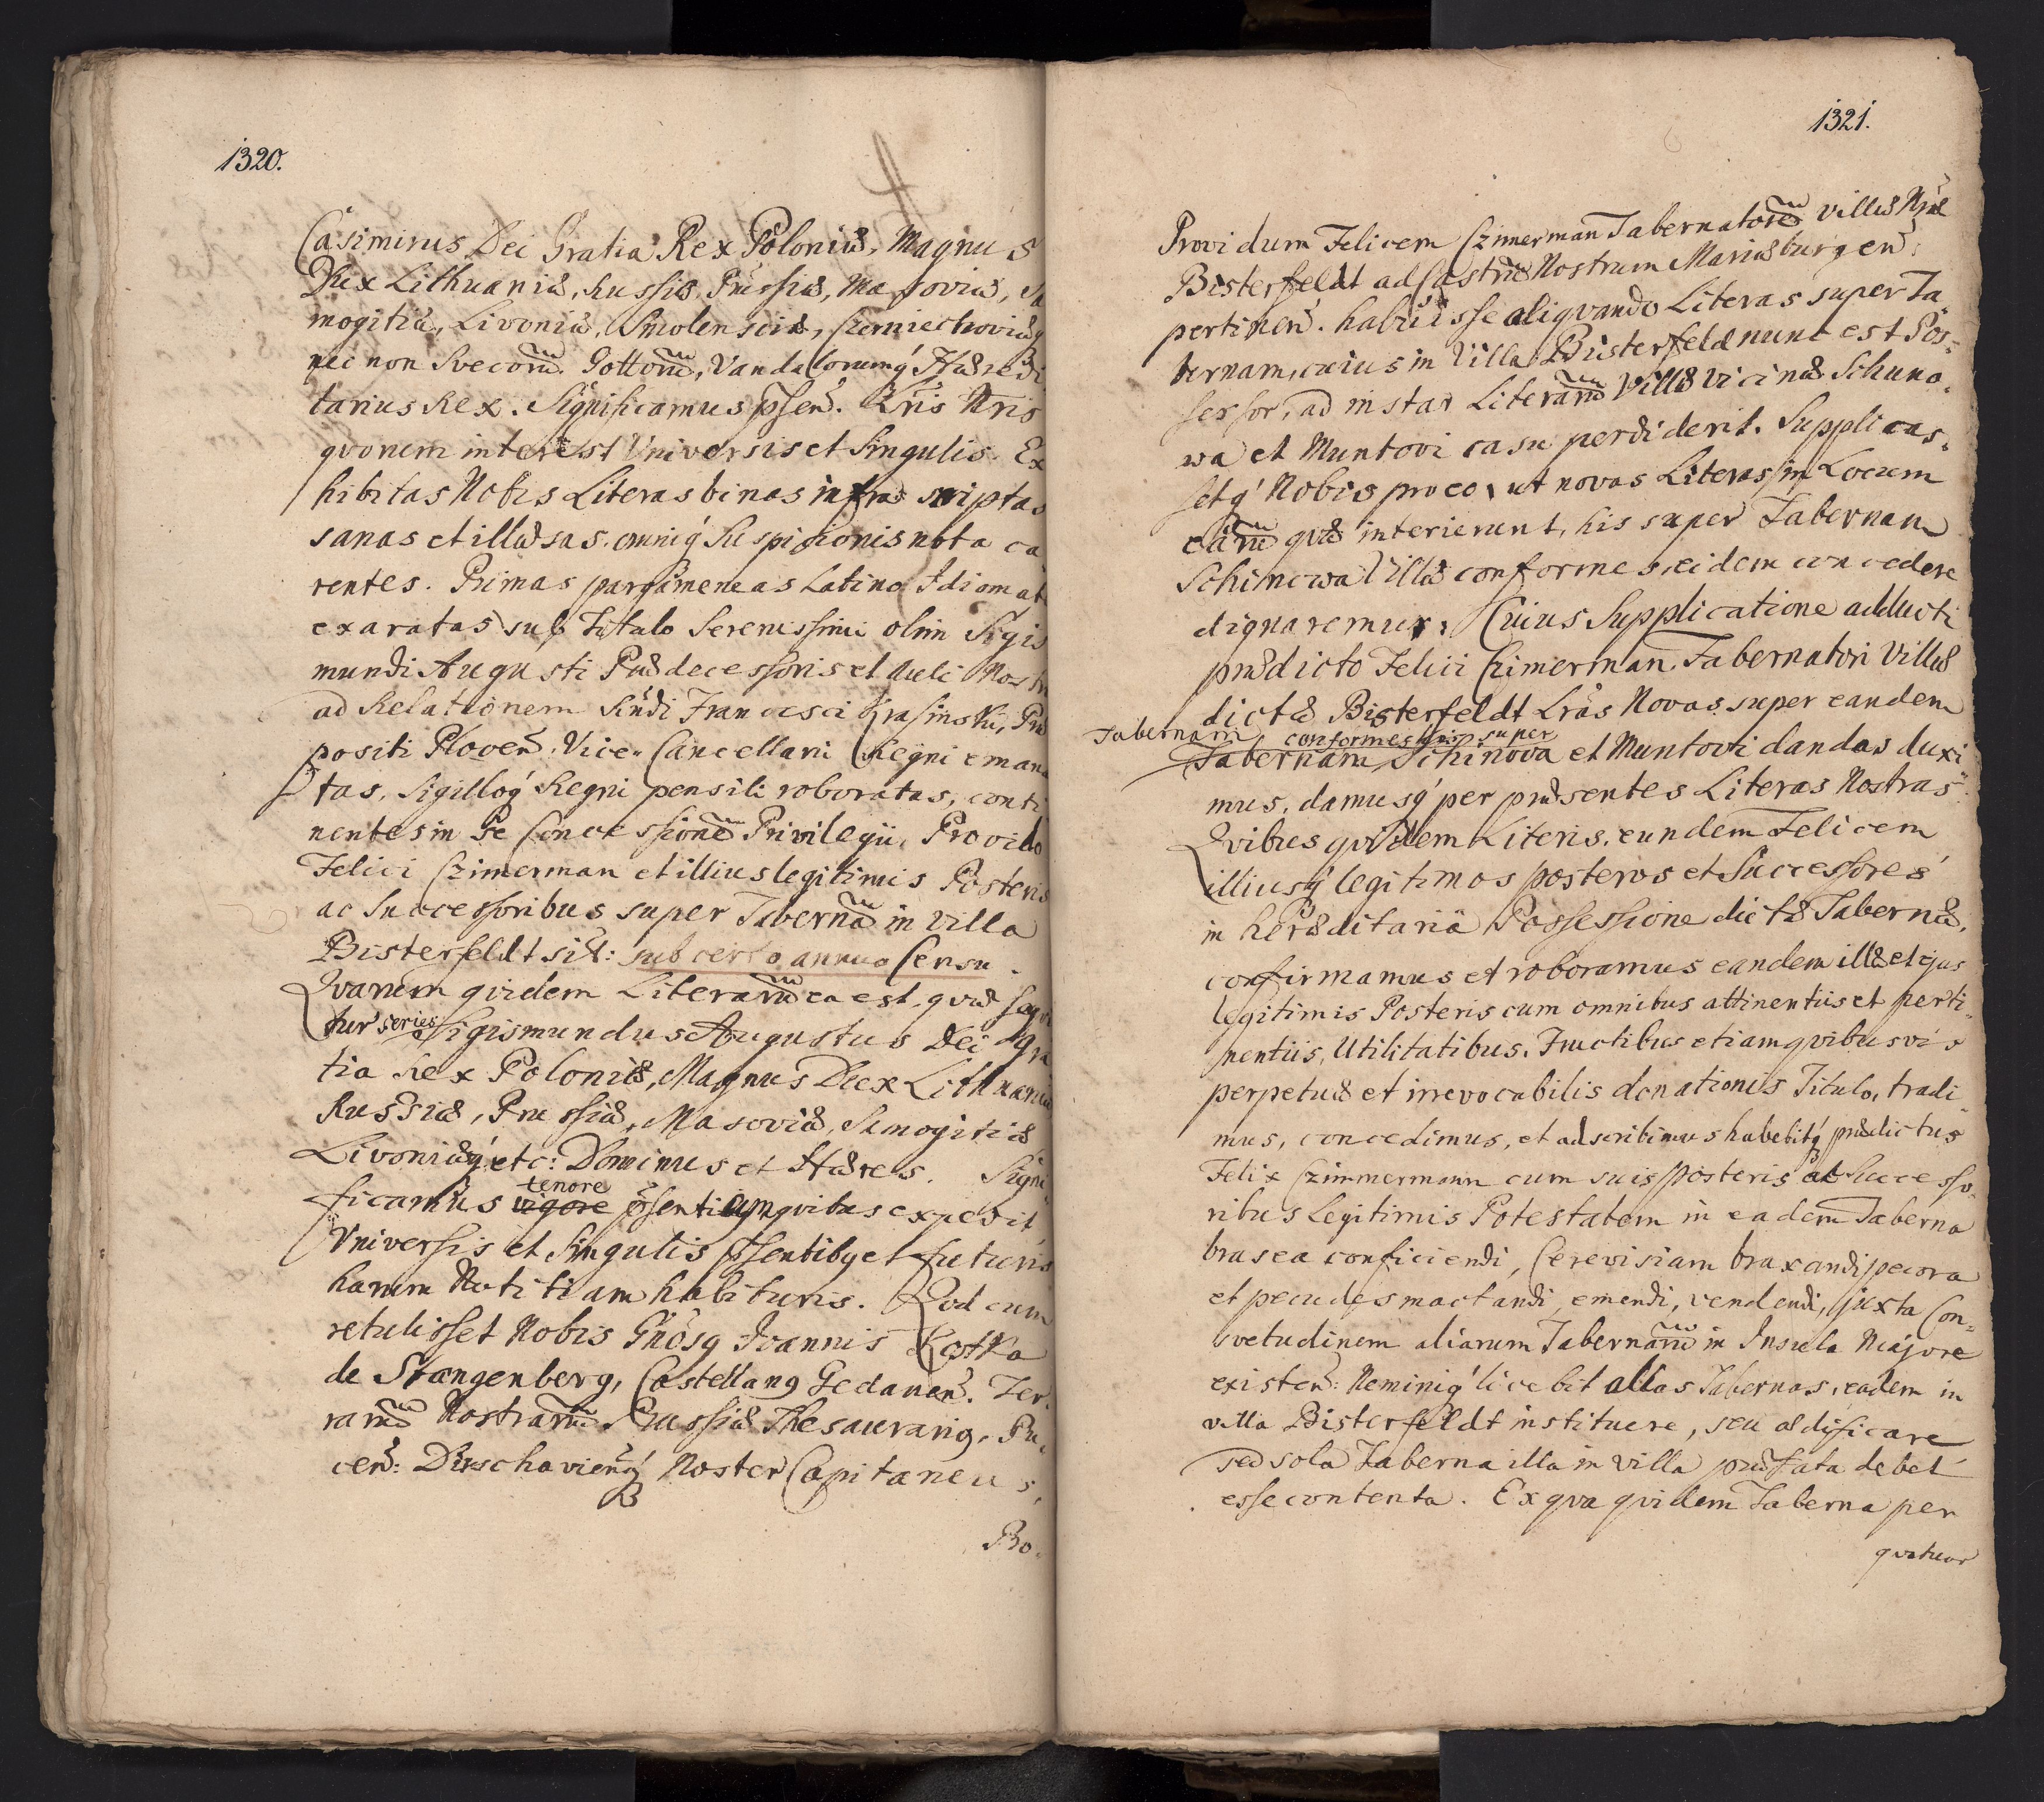 1320.
Casimirus Dei Gratia Rex Poloniæ, Magnus
Dux Lithuaniæ, Russiæ, Prussiæ, Masoviæ, Sa
mogitiæ, Livoniæ, Smolensciæ, Czerniechoviæq́
nec non Svecorũ Gottorũ, Vandalorumq́ Hæredi
tarius Rex. Significamus pħseñ. Lris Nris
qvorum interest Universis et Singulis. Ex
hibitas Nobis Literas binas infra scriptas
sanas et illæsas. omniq́ Suspicionis nota ca
rentes. Primas pargameneas Latino Idiomate
exaratas sub Titulo Serenissimi olim Sigis
mundi Augusti Prædecessoris et Avuli Nostri
ad Relationem Rñdi Francisci Krasinski, Præ
positi Ploceñ. Vice-Cancellarii Regni emana
tas, Sigilloq́ Regni pensili roboratas, conti
nentes in se Concessionẽ Privilegii, Provido
Felici Czimerman et illius legitimis Posteris
ac Successoribus super Tabernã in Villa
Bisterfeldt sitâ: sub certo annuo Censu.
Qvarum qvidem Literarũ ea est, qvæ seqvi
tur series Sigismundus Augustus Dei Gra
tia Rex Poloniæ, Magnus Dux Lithuaniæ
Russiæ, Prussiæ, Masoviæ, Samogitiæ
Livoniæq́ etc: Dominus et Hæres. Signi
tenore
ficamus vigore pħsentium qvibus expedit,
Universis et Singulis pħsentibq et futuris
harum Notitiam habituris. Qvod cum
retulisset Nobis Gñosq Joannis Kostka
de Stangenberg, Castellanq Gedaneñ. Ter
rarũ Nostrarũ Prussiæ Thesaurariq, Pu
ceñ: Dirschavieñq́ Noster Capitaneus,
Bo.
1321.
Providum Felicem Czimerman Tabernatorẽ villæ Nræ
Bisterfeldt ad Castrũ Nostrum Mariæburgeñ:
pertineñ. habuisse aliqvando Literas super Ta
bernam, cuius in Villa Bisterfeld nunc est Pos=
sessor, ad instar Literarũ Villæ vicinæ Schuno-
wa et Muntovi casu perdiderit. Supplicas=
setq́ Nobis pro eo, ut novas Literas in Locum
earũ qvæ interierunt, his super Tabernam
Schinowa Villæ conformes, eidem concedere
dignaremur. Cuius Supplicatione adducti
prædicto Felici Czimerman Tabernatori Villæ
dictæ Bisterfeldt Lrãs Novas super eandem
Tabernam conformes his super
Tabernam Schinova et Muntovi dandas duxi
mus, damusq́ per præsentes Literas Nostras
Qvibus qvidem Literis. eundem Felicem
illiusq́ legitimos posteros et Successores
in hæreditariâ Possessione dictæ Tabernæ,
confirmamus et roboramus eandem illæ et ejus
legitimis Posteris cum omnibus attinentiis et perti=
nentiis, Utilitatibus. Fructibus etiam qvibusvis
perpetuæ et irrevocabilis donationis Titulo, tradi
mus, concedimus, et adscribimus habebitq́ prædictus
Felix Czimmermann cum suis posteris ac Successo-
ribus Legitimis Potestatem in eadem Taberna
brasea conficiendi, Cerevisiam braxandi pecora
et pecudes mactandi, emendi, vendendi, juxta Con=
svetudinem aliarum Tabernarũ in Insula Majore
existeñ: Neminiq́ licebit alias Tabernas, eadem in
villa Bisterfeldt instituere, seu ædificare
sed sola Taberna illa in villa præfata debet
esse contenta. Ex qva qvidem Taberna per
qvatuor